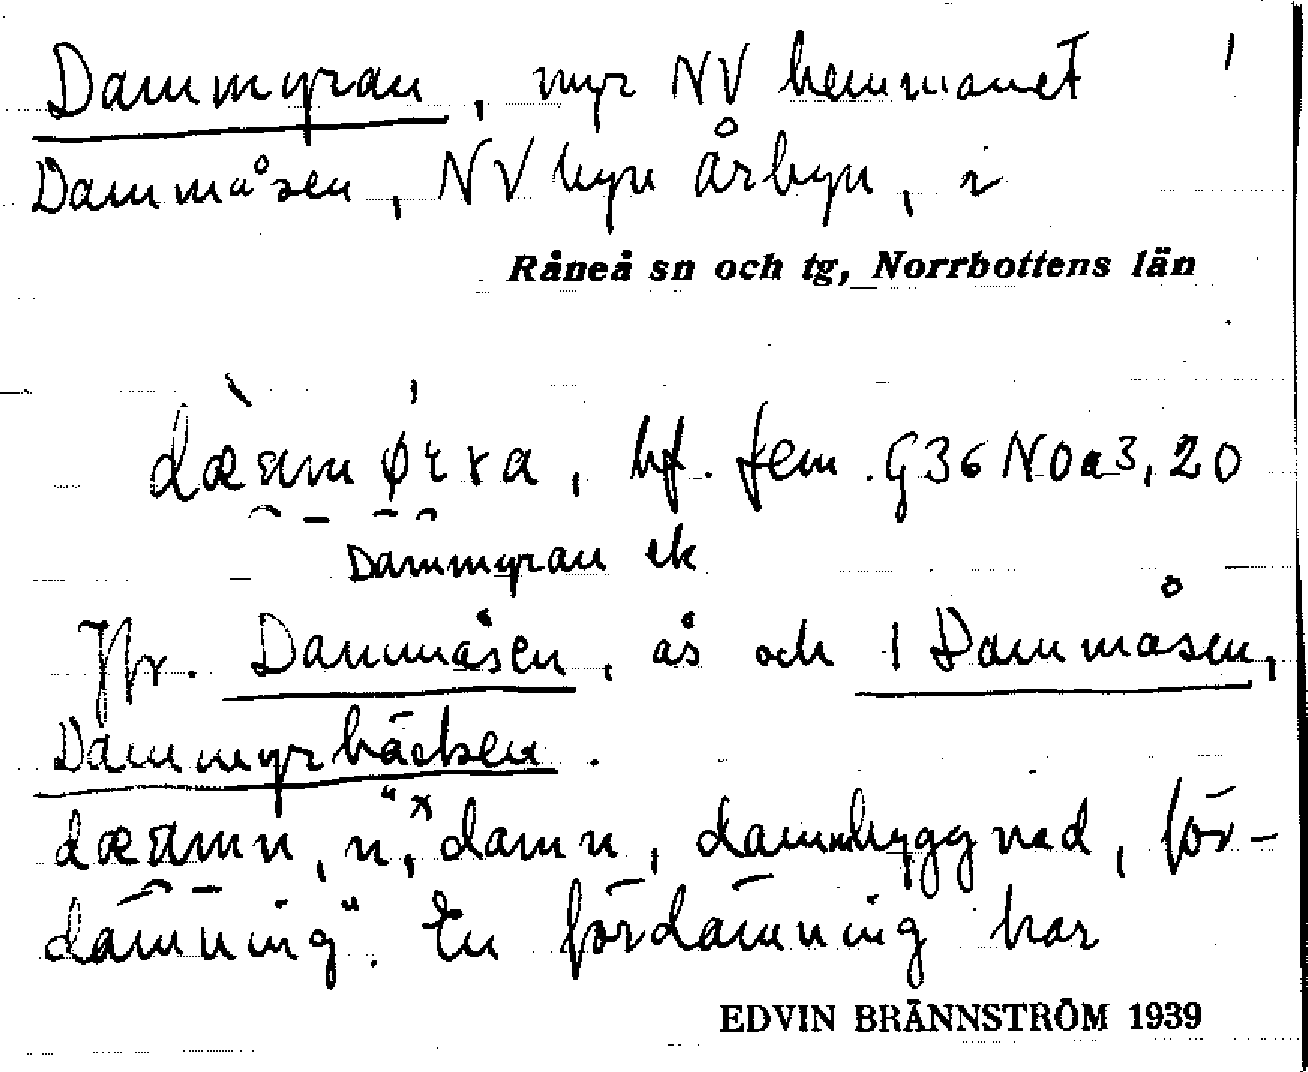 Dammyran, myr NV hemmanet 1
Dammåsen, NV byn Årbyn, i
Råneå sn och tg, Norrbottens län
bf. fem. G36 NOa3, 20
Dammyran ek
Jfr. Dammåsen, ås och 1 Dammåsen,
Dammyrbäcken.
n, "*damn, dammbyggnad, för-
dämning". En fördämning har
EDVIN BRÄNNSTRÖM 1939